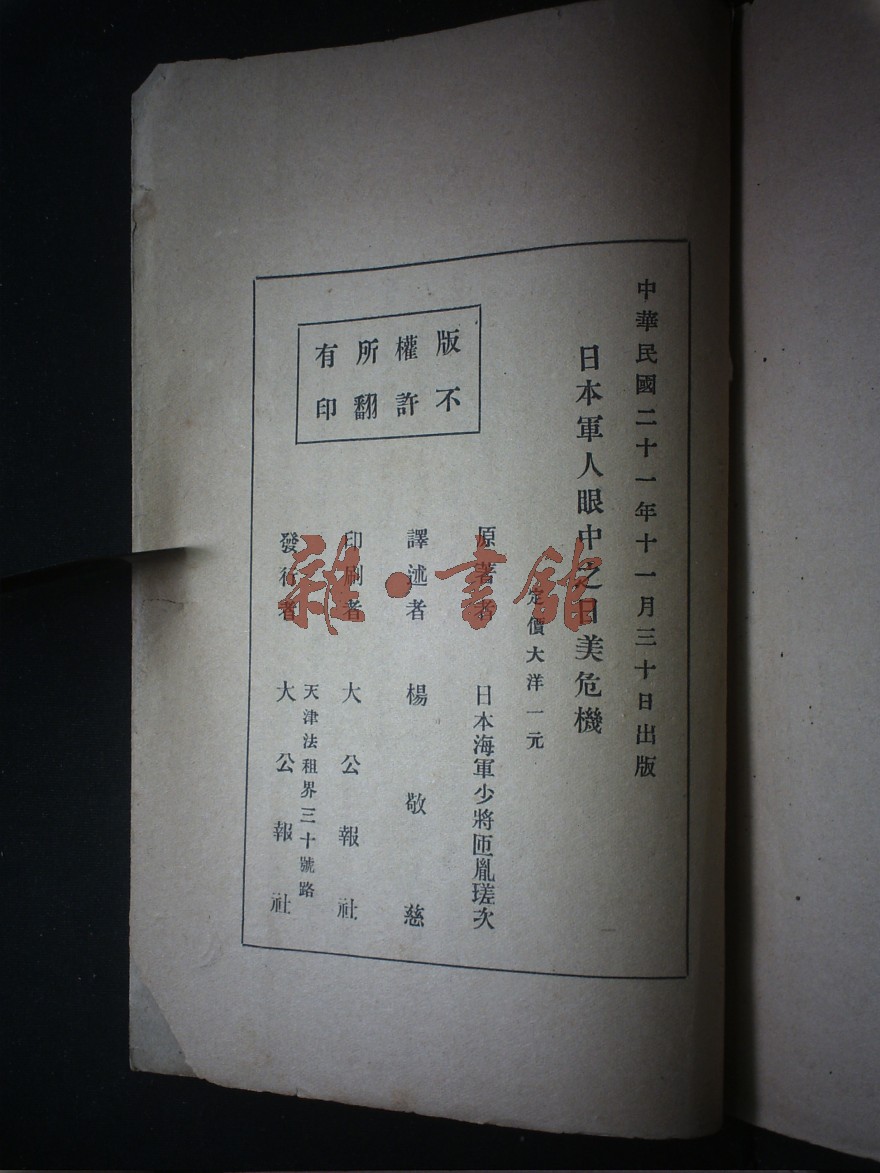 中華民國二十一年十一月三十日出版
日本軍人眼中之日美危機
定價大洋一元
原著者 日本海軍少將匝胤瑳次
譯述者 楊敬慈
印刷者 大公報社
天津法租界三十號路
發行者 大公報社
版權所有
不許翻印
雜·書館